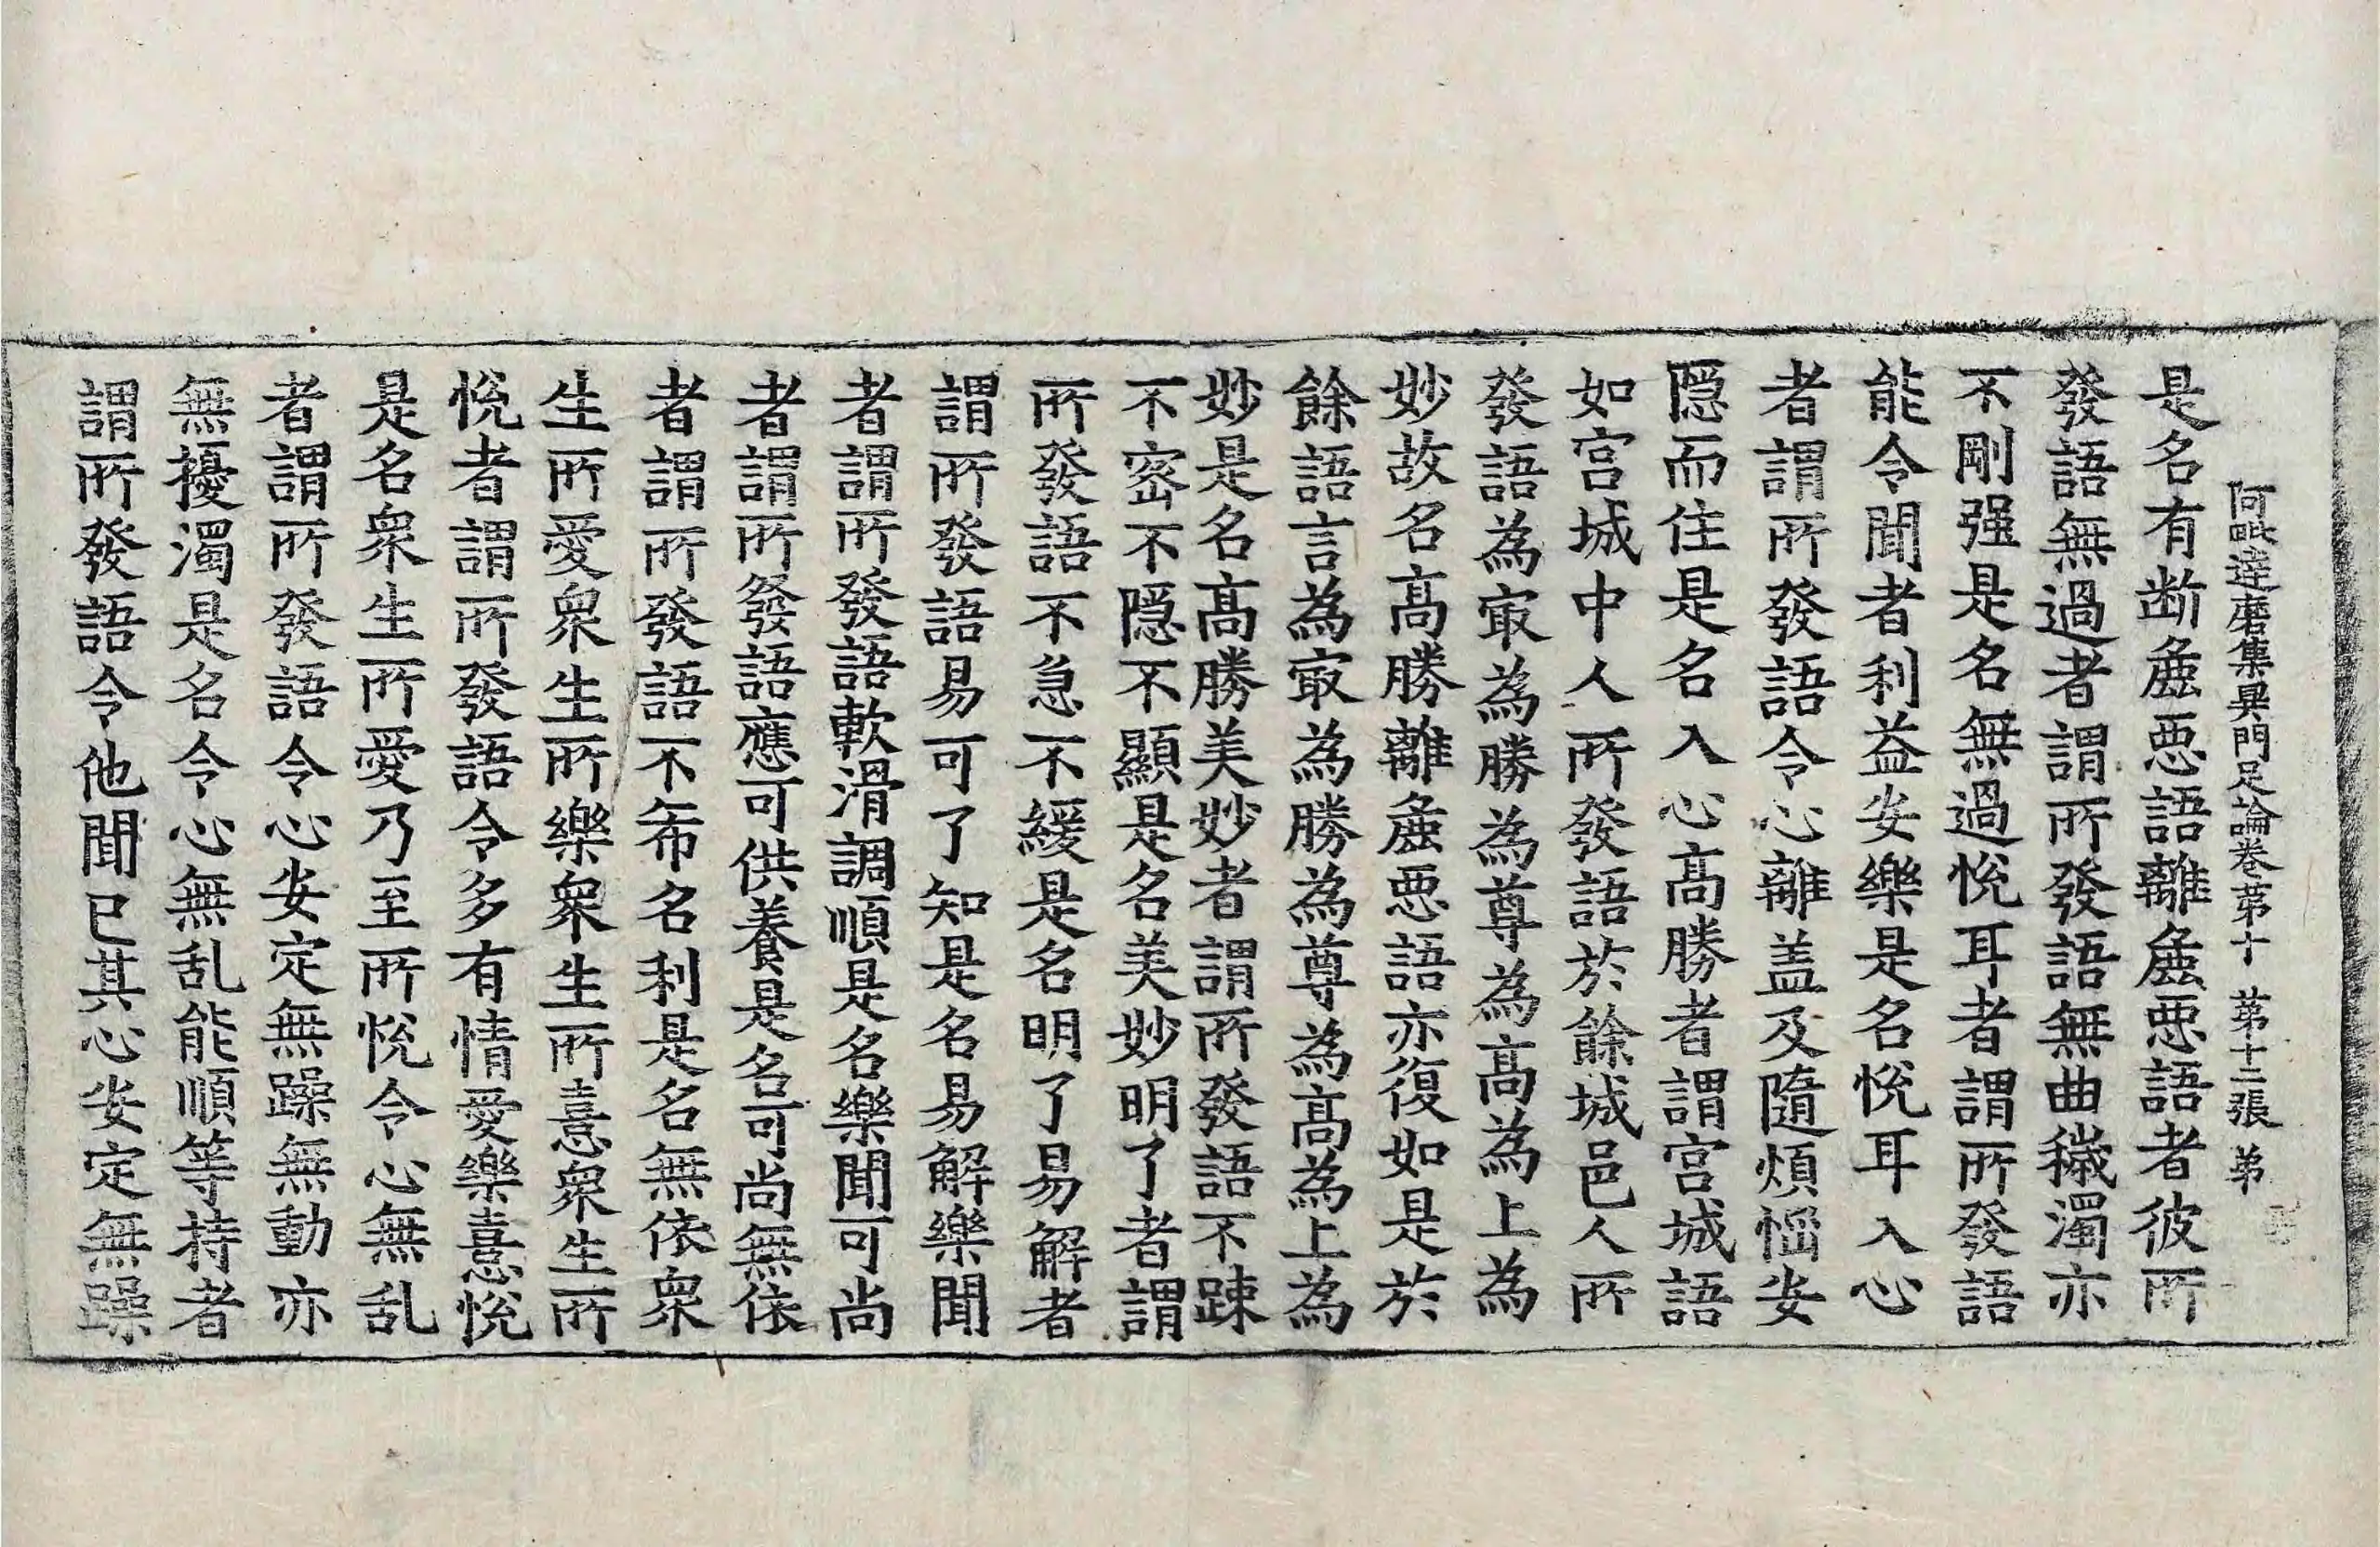 阿毗達磨集異門足論卷苐十 苐十二張 弟
是名有断麁惡語離麁惡語者彼所
發語無過者謂所發語無曲穢濁亦
不剛强是名無過悅耳者謂所發語
能令聞者利益安樂是名悅耳入心
者謂所發語令心離盖及隨煩惱安
隱而住是名入心高勝者謂宫城語
如宫城中人所發語於餘城邑人所
發語為㝡為勝為尊為高為上為
妙故名高勝離麁惡語亦復如是於
餘語言為㝡為勝為尊為高為上為
妙是名高勝美妙者謂所發語不踈
不密不隱不顯是名美妙明了者謂
所發語不急不緩是名明了易解者
謂所發語易可了知是名易解樂聞
者謂所發語軟滑調順是名樂聞可尚
者謂所發語應可供養是名可尚無依
者謂所發語不希名利是名無依衆
生所愛衆生所樂衆生所憙衆生所
悅者謂所發語令多有情愛樂憙悅
是名衆生所愛乃至所悅令心無乱
者謂所發語令心安定無躁無動亦
無擾濁是名令心無乱能順等持者
謂所發語令他聞已其心安定無躁